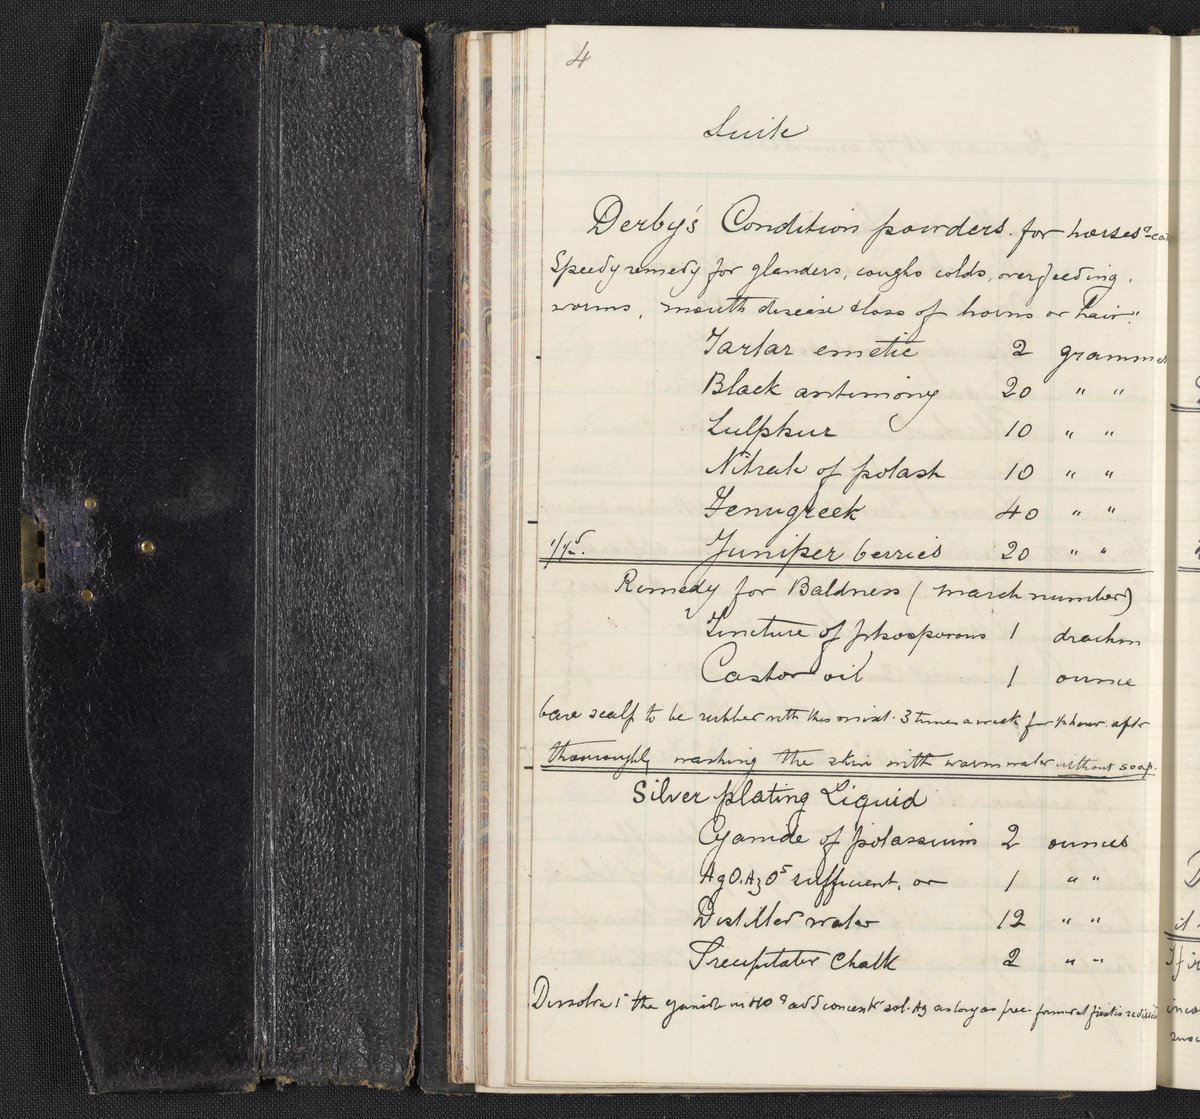 4
Suite
Derby's Condition powders. for horses
Speedy remedy for glanders, coughs colds, overfeeding,
worms, mouth disease & loss of horns or hair."
Tartar emetic 2 grammes
Black antimony 20 " "
Sulphur 10 " "
Nitrate of potash 10 " "
Fenugreek 40 " "
Juniper berries 20 " "
Remedy for Baldness (march number)
Tincture of phosporous 1 drachm
Castor oil 1 ounce
bare scalp to be rubber with this mixt. 3 times a week for ½ hour. after
thouroughly washing the skin with warm water without soap.
Silver plating Liquid
Cyanide of potassium 2 ounces
AgO.AzO5 sufficient, or 1 " "
Distiller water 12 " "
Precipitater Chalk 2 " "
Dissolve 1st the cyanide in HO & add concentr sol. Ag as long as prec. formed at first is